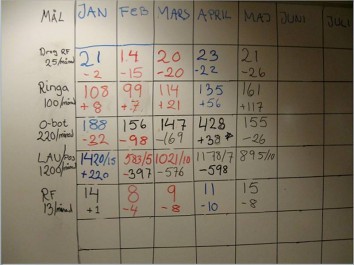 MÅL JAN FEB MARS APRIL MAJ JUNI JULI
Drag RF 21 14 20 23 21
25/månad -2 -15 -20 -22 -26
Ringa 108 99 114 135 161
100/månad +8 +7 +21 +56 +117
O-bot 188 156 147 428 155
220/månad -32 -98 -169 +39 -26
1420/15 583/5 1021/10 1178/7 895/10
+220 -397 -576 -598
RF 14 8 9 11 15
13/månad +1 -4 -8 -10 -8